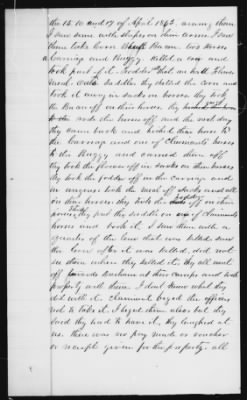 the 15. 16 and 17 of April 1865. among them
I saw some with stripes on their arms. I saw
them take Corn Bacon two Horses
a Carriage and Buggy. Killed a cow and
took part of it. Fodder Hat an bell, Flour
and Oats Saddles they shelled the corn and
took it away in sacks on horses. they took
the Bacon off on their horses. they
rode the horses off and the next day
they came back and hitched their horses to
the Carriage and one of Claimants horses
to the Buggy and carried them off
they took the flour off in sacks on their horses
they took the fodder off on the carriage and
in wagons. took the meal off sacks and all
on their horses they took the off on their
horses, they put the saddle on one of Claimants
horses and took it. I saw them with a
quarter of the cow that was killed. saw
the cow after it was killed, did not
see them when they killed it. they all went
off towards Durham at their camps and took
property with them. I don't know what they
did with it. Claimant begged the officers
not to take it. I begged them also but they
said they had to have it, they laughed at
us. there was no pay made or voucher
or receipt given for the property. all